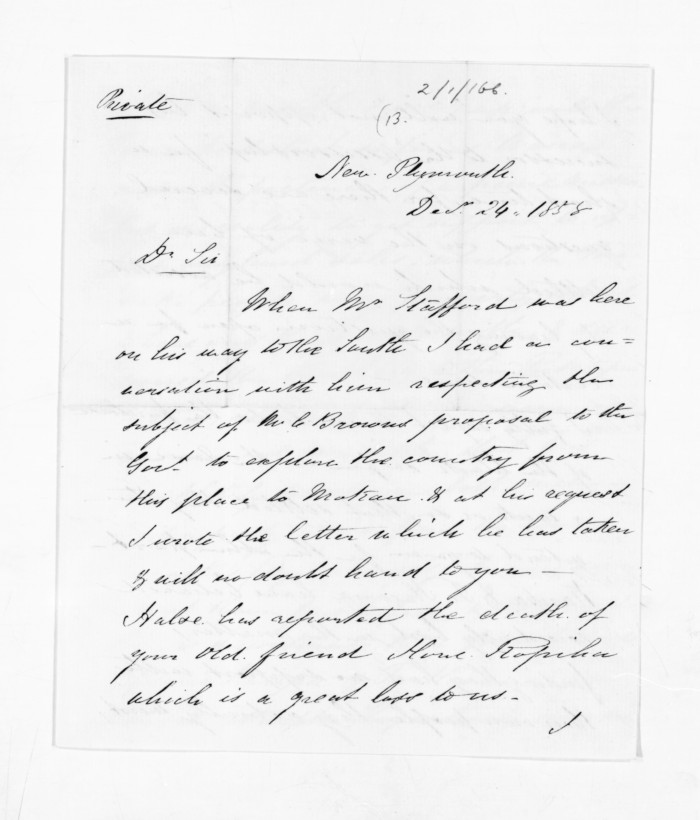 2/1/166.
Private
(13.
New Plymouth.
Decr. 24. 1858
Dr Sir
When Mr Stafford was here
on his way to the South I had a con=
versation with him respecting the
subject of Mr C Browns proposal to the
Govt. to explore the country from
this place to Mokau & at his request
I wrote the letter which he has taken
& will no doubt hand to you—
Halse has reported the death of
your old friend Hone Ropiha
which is a great loss to us-
I